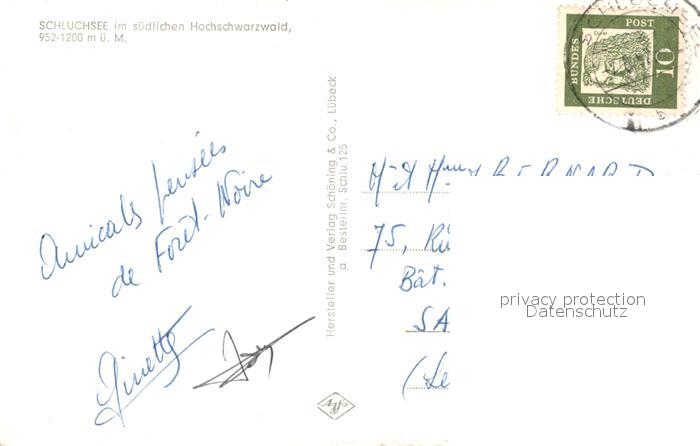 SCHLUCHSEE im südlichen Hochschwarzwald,
952-1200 m ü. M.
Amicales pensées
de Forêt-Noire
Ginette
Hersteller und Verlag Schöning & Co., Lübeck
a Bestellnr. Schlu 125
Agfa
DEUTSCHE
BUNDES
POST
10
Dürer
M. et Mme BERNARD
75, Rü
Bât.
SA
(Le
privacy protection
Datenschutz